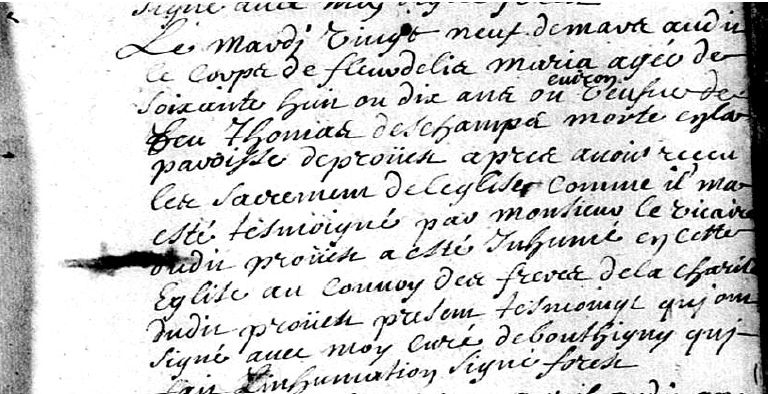 signé avec moy
Le mardj vingt neuf de mars audit
le corps de fleurdelis maria agée de
soixante huit ou dix ans ou environ veufve de
feu Thomas deschamps morte en la
paroisse de proüen apres avoir receu
les sacrement de leglise comme il ma
esté tesmoigné par monsieur le vicaire
dudit proüen a esté Inhumé en cette
Eglise au convoy des freres de la charité
dudit proüen present tesmoings quj ont
signé avec moy curé de bouthigny quj
fait Linhumation signé forest